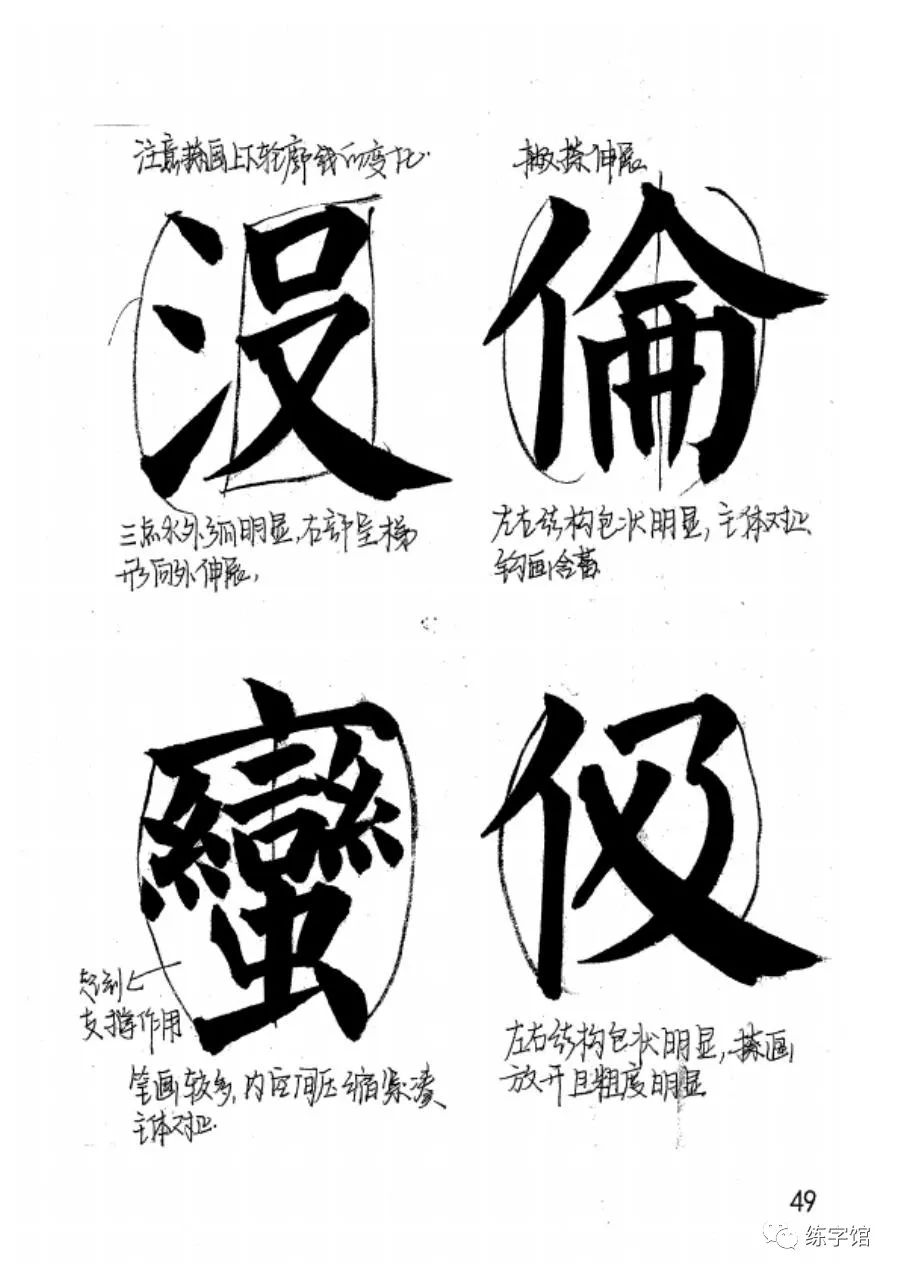 注意捺画上下轮廓线的变化.
撇捺伸展
没
倫
三点水外弧明显,右部呈梯
形向外伸展,
左右结构包状明显,主体对正
钩画含蓄
蠻
伋
起到
支撑作用
笔画较多,内空间压缩紧凑
主体对正.
左右结构包状明显,捺画
放开且粗度明显
49
练字馆